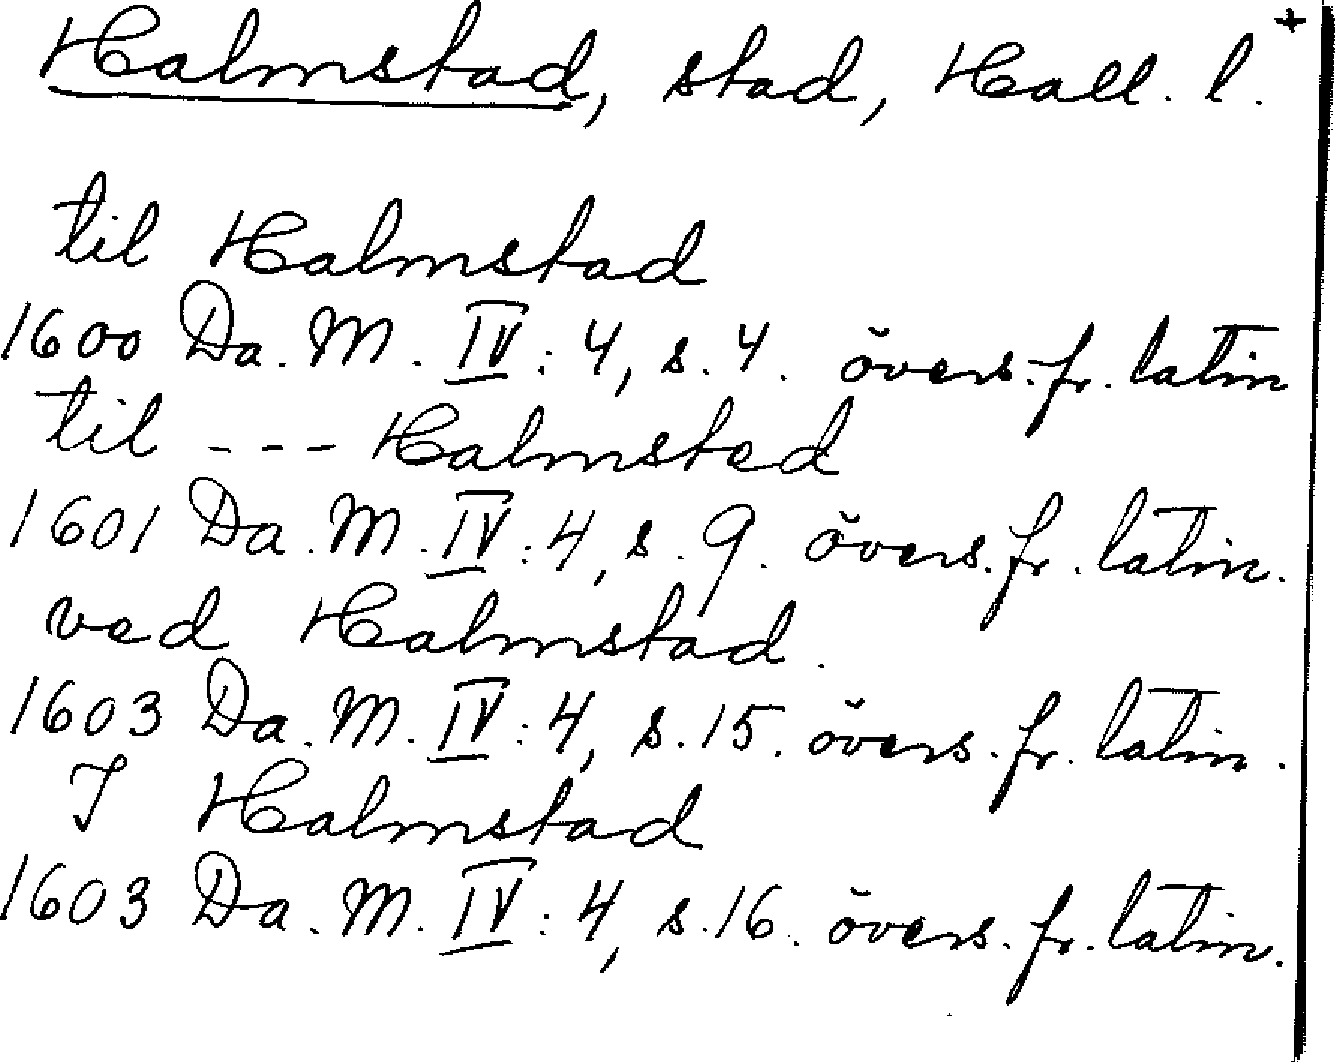 Halmstad, stad, Hall. l. +
til Halmstad
1600 Da. M. IV: 4, s. 4. övers. fr. latin
til --- Halmsted
1601 Da. M. IV: 4, s. 9. övers. fr. latin.
ved Halmstad.
1603 Da. M. IV: 4, s. 15. övers. fr. latin.
I Halmstad
1603 Da. M. IV: 4, s. 16. övers. fr. latin.